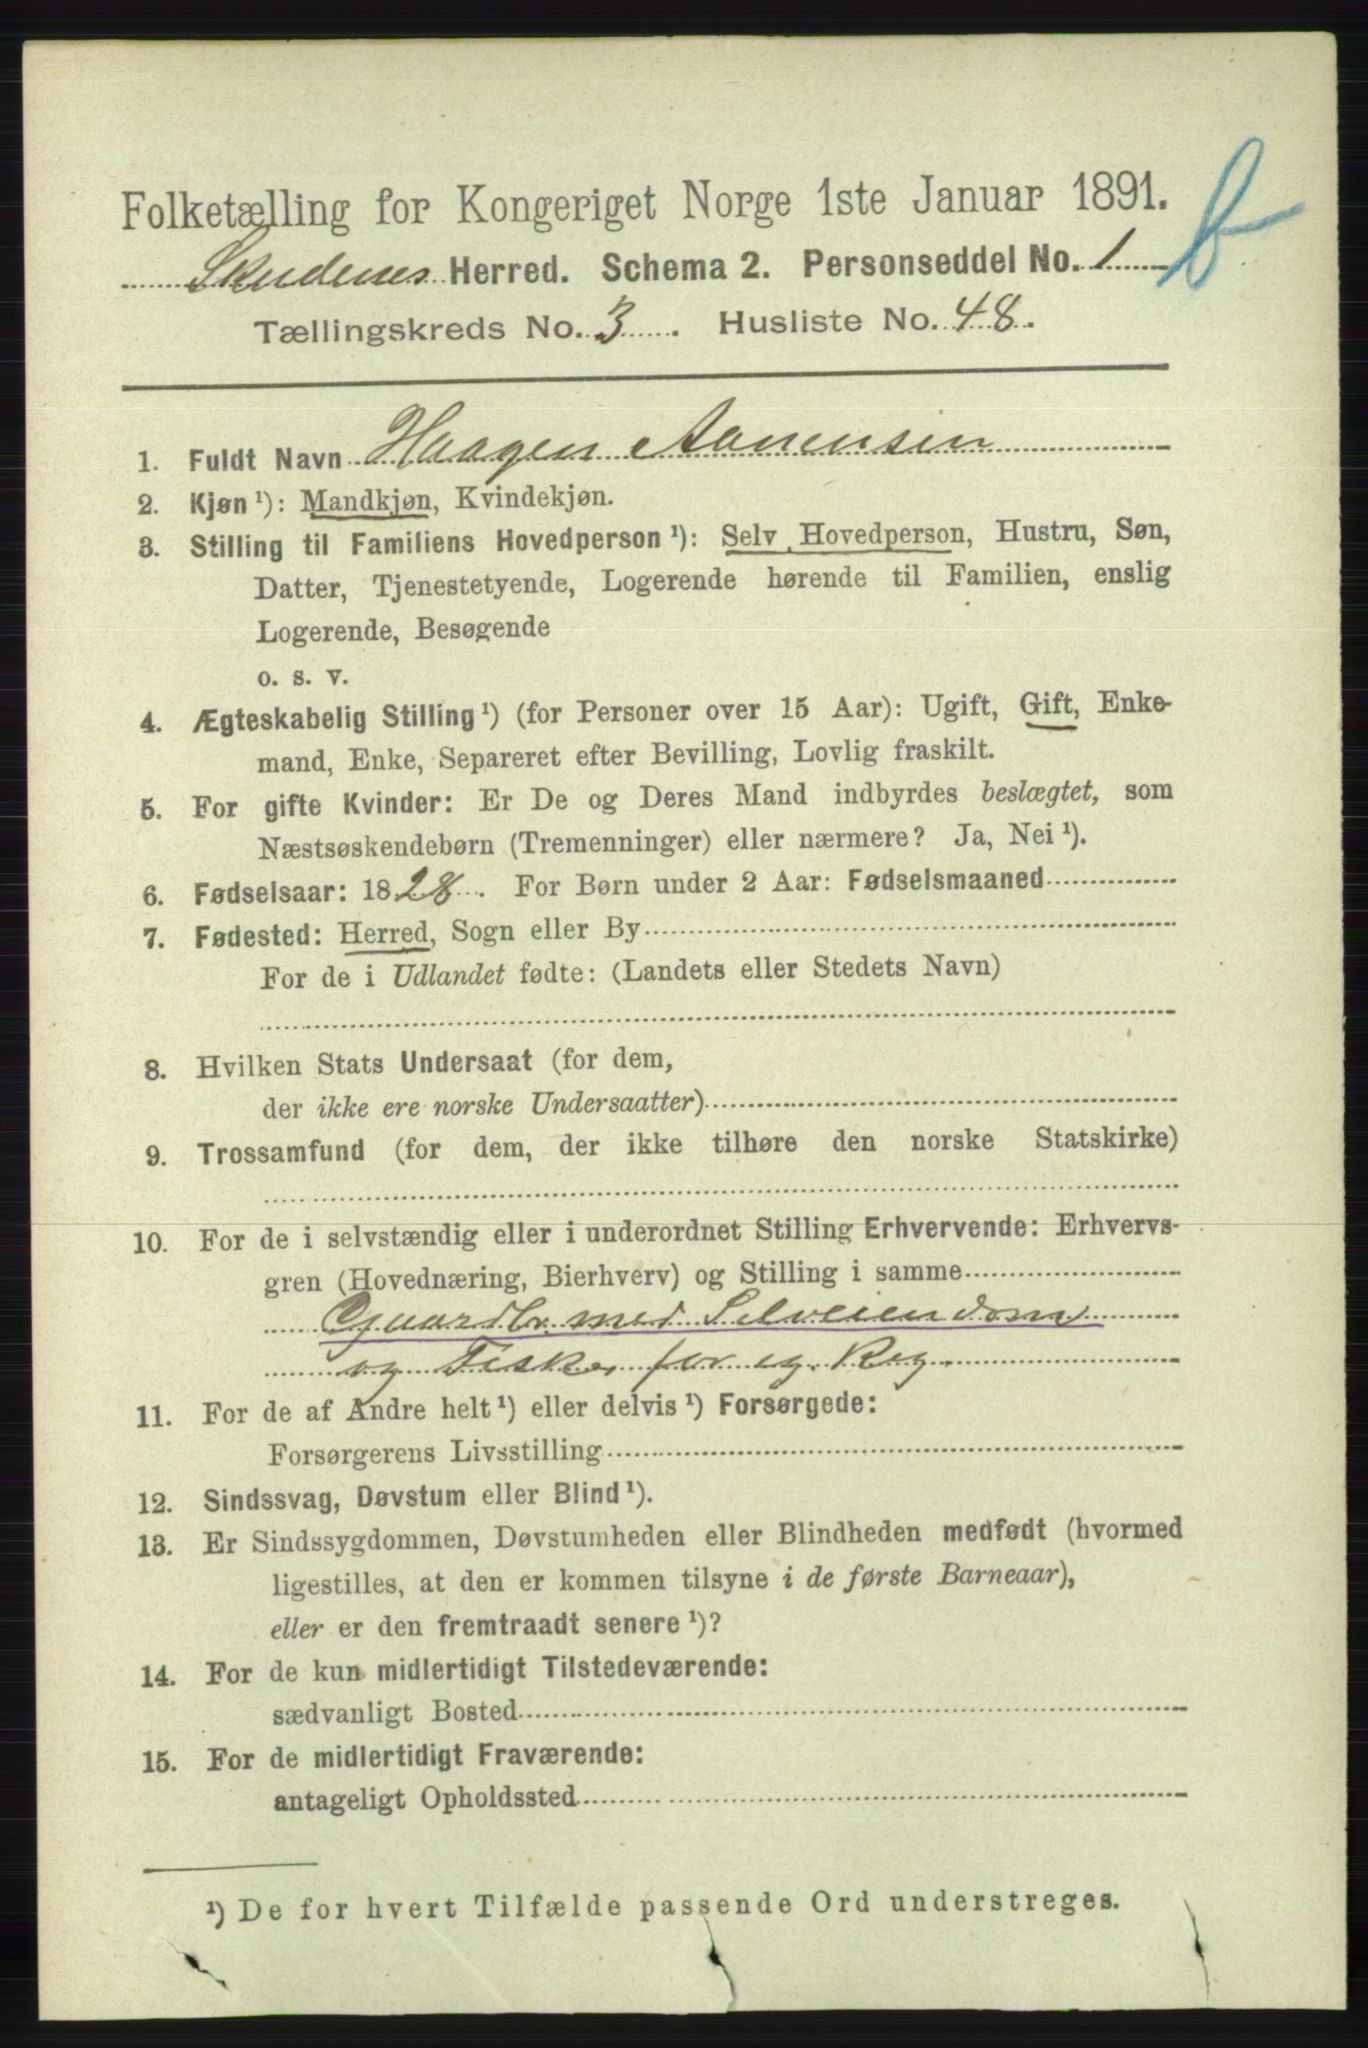 Folketælling for Kongeriget Norge 1ste Januar 1891.
b
Skudenes Herred. Schema 2. Personseddel No. 1
Tællingskreds No. 3. Husliste No. 48.
1. Fuldt Navn Haagen Aanensen
2. Kjøn ¹): Mandkjøn, Kvindekjøn.
3. Stilling til Familiens Hovedperson ¹): Selv Hovedperson, Hustru, Søn,
Datter, Tjenestetyende, Logerende hørende til Familien, enslig
Logerende, Besøgende
o. s. v.
4. Ægteskabelig Stilling ¹) (for Personer over 15 Aar): Ugift, Gift, Enke-
mand, Enke, Separeret efter Bevilling, Lovlig fraskilt.
5. For gifte Kvinder: Er De og Deres Mand indbyrdes beslægtet, som
Næstsøskendebørn (Tremenninger) eller nærmere? Ja, Nei ¹).
6. Fødselsaar: 1828. For Børn under 2 Aar: Fødselsmaaned
7. Fødested: Herred, Sogn eller By
For de i Udlandet fødte: (Landets eller Stedets Navn)
8. Hvilken Stats Undersaat (for dem,
der ikke ere norske Undersaatter)
9. Trossamfund (for dem, der ikke tilhøre den norske Statskirke)
10. For de i selvstændig eller i underordnet Stilling Erhvervende: Erhvervs-
gren (Hovednæring, Bierhverv) og Stilling i samme
Gaardbr. med Selveiendom
og Fisker for eg. Reg.
11. For de af Andre helt ¹) eller delvis ¹) Forsørgede:
Forsørgerens Livsstilling
12. Sindssvag, Døvstum eller Blind ¹).
13. Er Sindssygdommen, Døvstumheden eller Blindheden medfødt (hvormed
ligestilles, at den er kommen tilsyne i de første Barneaar),
eller er den fremtraadt senere ¹)?
14. For de kun midlertidigt Tilstedeværende:
sædvanligt Bosted
15. For de midlertidigt Fraværende:
antageligt Opholdssted
¹) De for hvert Tilfælde passende Ord understreges.